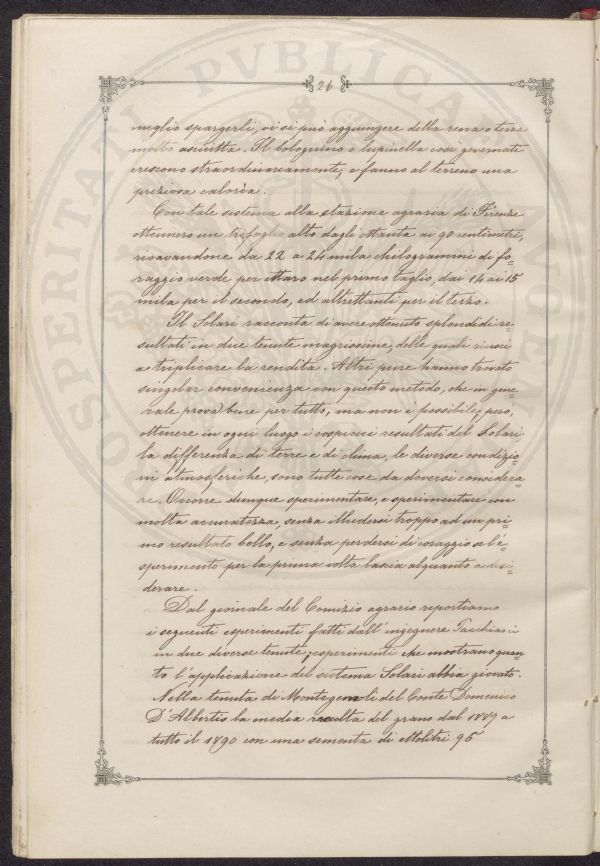 26
meglio spargerli, vi si può aggiungere della rena o terra
molto asciutta. Il bolognino e lupinella così governati
crescono straordinariamente, e fanno al terreno una
preziosa calorìa.
Con tale sistema alla stazione agraria di Firenze
ottennero un trifoglio alto dagli ottanta ai 90 centimetri,
ricavandone da 22 a 24 mila chilogrammi di fo-
raggio verde per ettaro nel primo taglio, dai 14 ai 15
mila per il secondo, ed altrettanti per il terzo.
Il Solari racconta di avere ottenuto splendidi re-
sultati in due tenute magrissime, delle quali riuscì
a triplicare la rendita. Altri pure hanno trovato
singolar convenienza con questo metodo, che in gene-
rale prova bene per tutto, ma non è possibile, però,
ottenere in ogni luogo i cospicui resultati del Solari;
la differenza di terre e di clima, le diverse condizio-
ni atmosferiche, sono tutte cose da doversi considera-
re. Occorre dunque sperimentare, e sperimentare con
molta accuratezza, senza illudersi troppo ad un pri-
mo resultato bello, e senza perdersi di coraggio se l'e-
sperimento per la prima volta lascia alquanto a desi-
derare.
Dal giornale del Comizio agrario riportiamo
i seguenti esperimenti fatti dall'ingegnere
in due diverse tenute; esperimenti che mostrano quan-
to l'applicazione del sistema Solari abbia giovato.
Nella tenuta di Montegemoli del Conte Domenico
D'Albertis la media raccolta del grano dal 1887 a
tutto il 1890 con una sementa di ettolitri 95
OSPERITATI PVBLICAE AVGEN